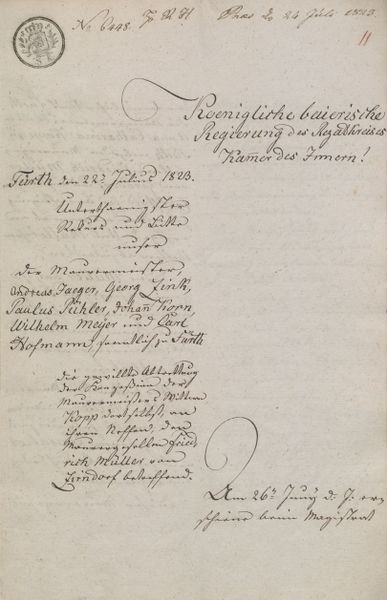 No 6448.
Praes d. 24 Juli 1823
11
Koenigliche baierische
Regierung des Rezatkreises
Kammer des Innern!
Fürth den 22ⁿ Julius 1823.
Unterthaenigster
Rekurs und Bitte
unser
der Mauermeister,
Andreas Jaeger, Georg Zink,
Paulus Pühler, Johann Korn,
Wilhelm Meijer und Carl
Hofmann, saemtlich zu Fürth
die gewillte Abtrettung
der Konzeßion der
Maurermeisters Wittwe
Kopp dortselbst, an
ihren Neffen, den
Maurergesellen Fried-
rich Müller von
Zirndorf betreffend.
Am 26ⁿ Juny d. J. er-
schiene beim Magistrat